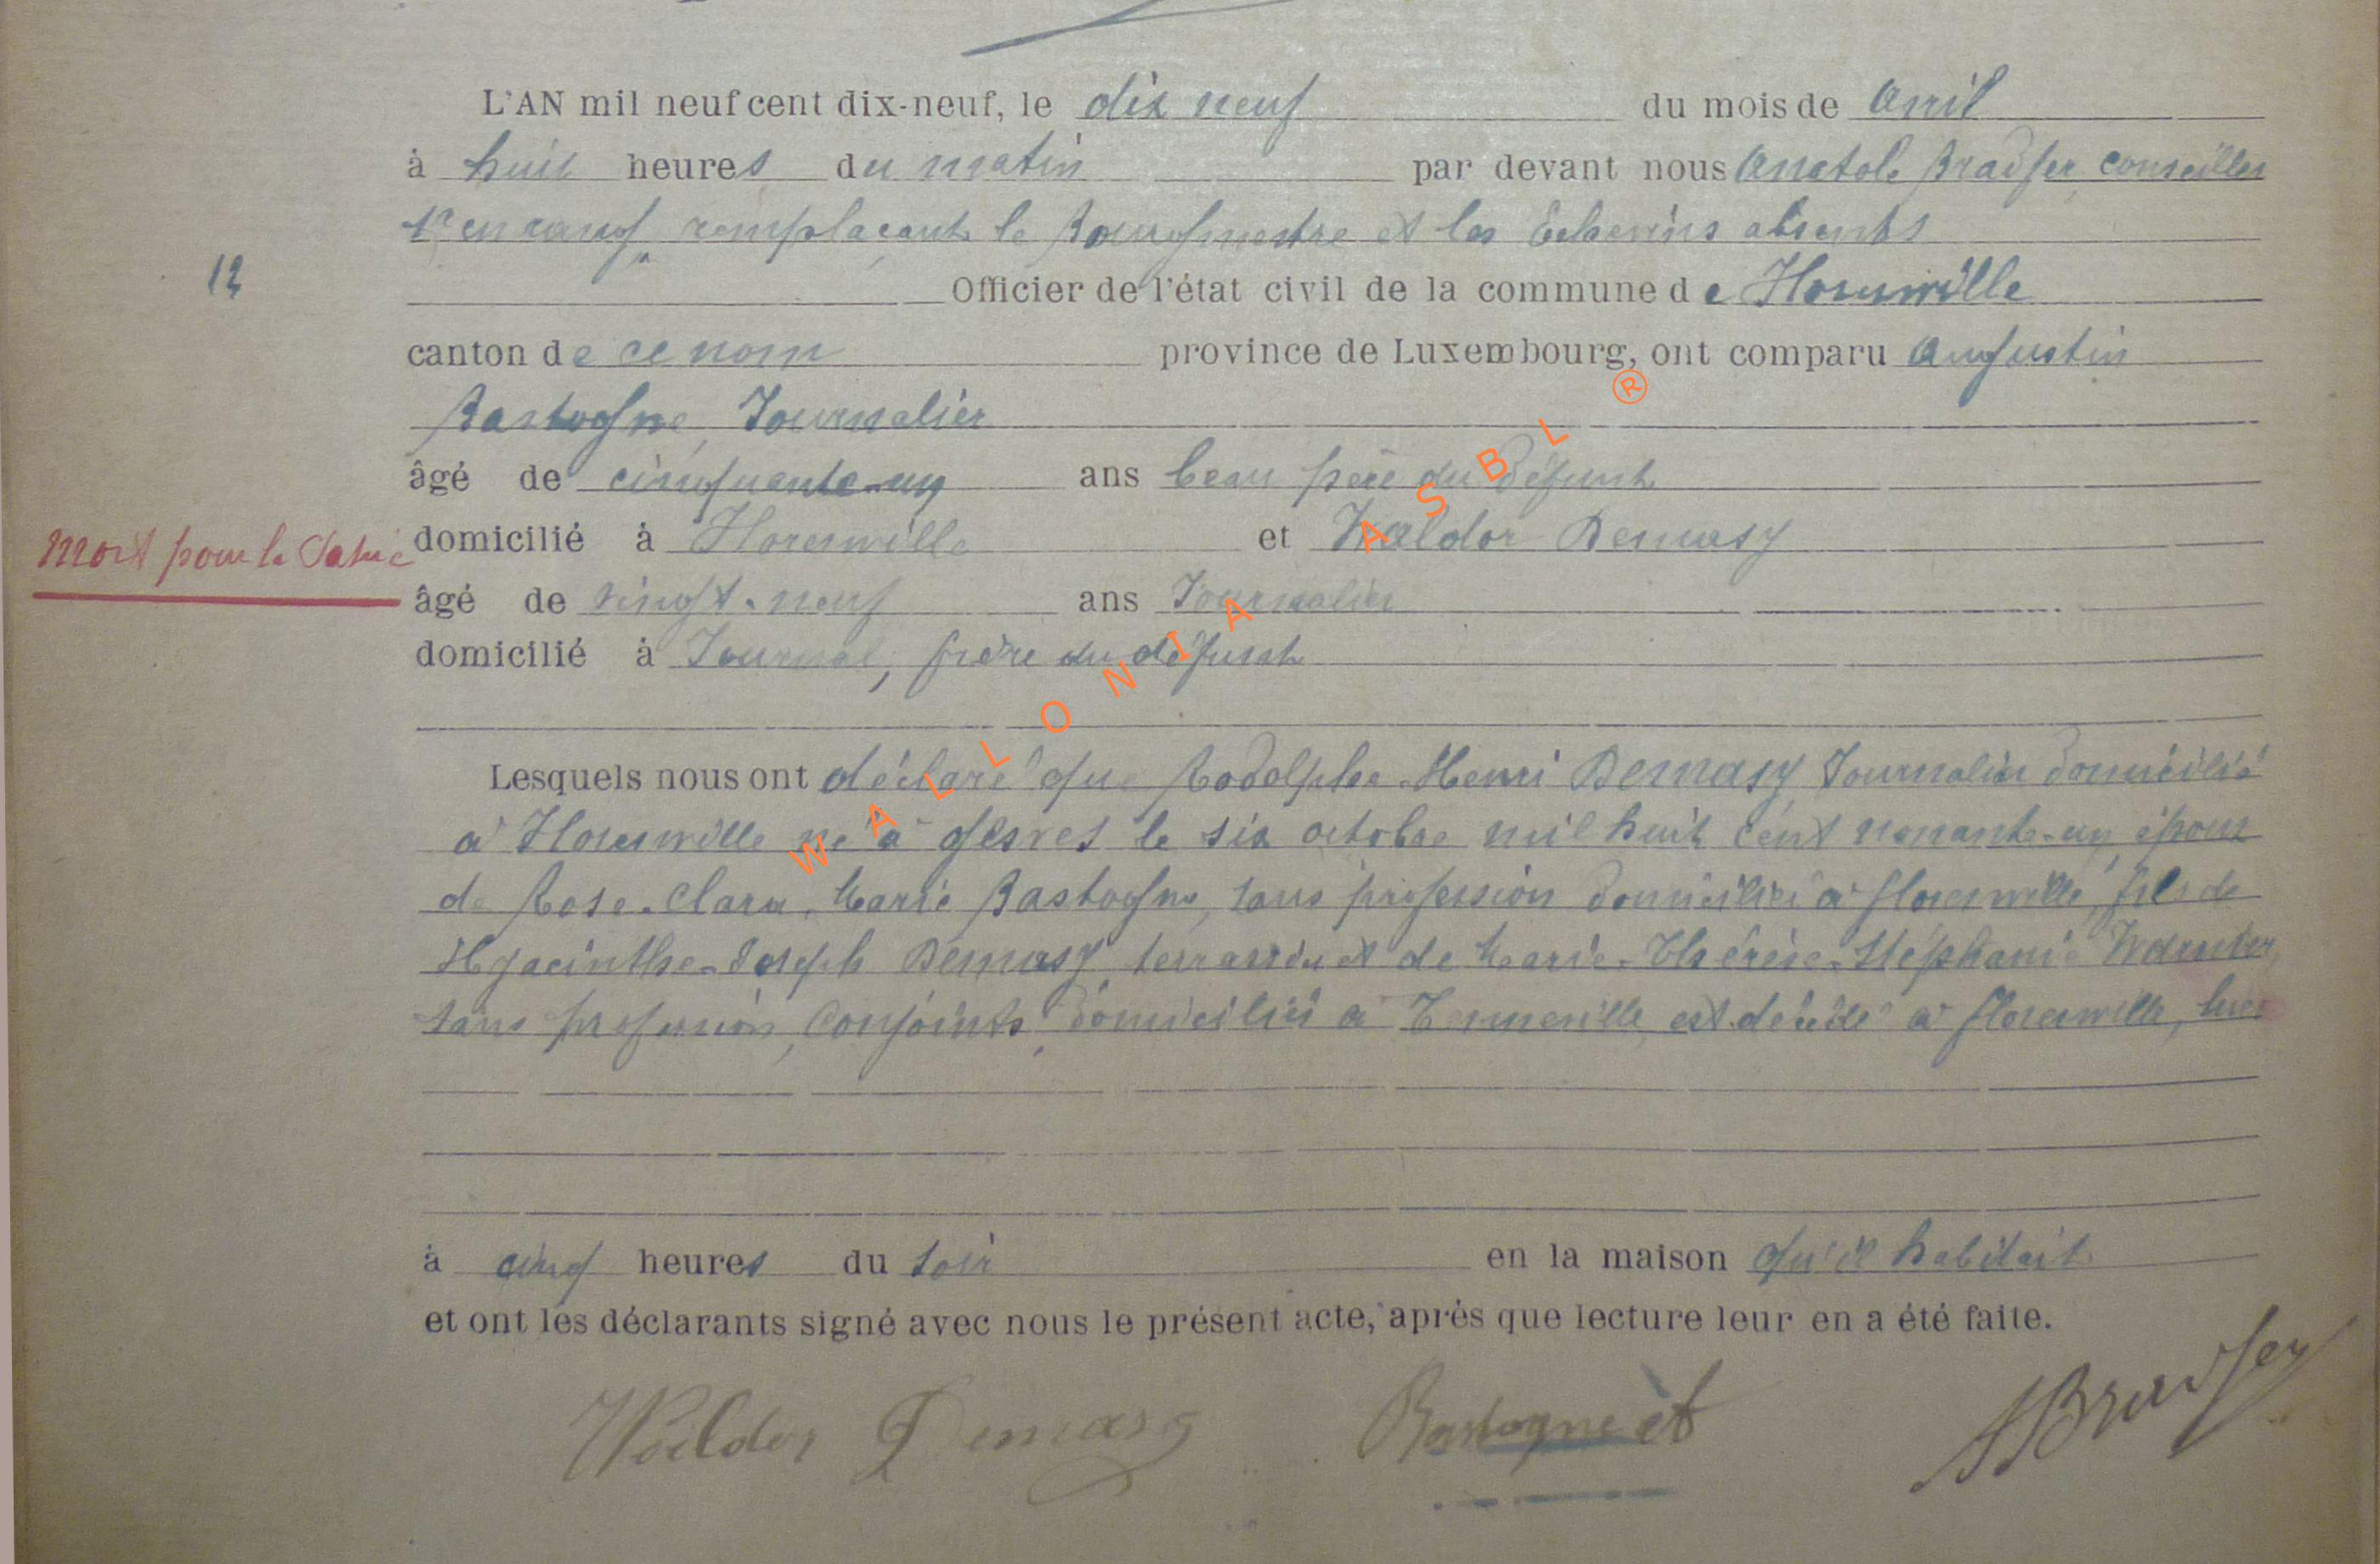 L'AN mil neuf cent dix-neuf, le dix neuf du mois de avril
à huit heures du matin par devant nous Anatole Bradfer, conseiller
1er en rang, remplaçant le Bourgmestre et les Echevins absents
12
Officier de l'état civil de la commune de Florenville
canton de ce nom province de Luxembourg, ont comparu Augustin
Bastogne, Journalier
âgé de cinquante-un ans beau père du défunt
Mort pour la Patrie
domicilié à Florenville et Waldor Demasy
âgé de vingt-neuf ans Journalier
domicilié à Journal, frère du défunt
Lesquels nous ont déclaré que Rodolphe-Henri Demasy Journalier domicilié
à Florenville né à Gesves le six octobre mil huit cent nonante-un, époux
de Rose-Clara-Marie Bastogne, sans profession domiciliée à Florenville, fils de
Hyacinthe-Joseph Demasy, terrassier et de Marie-Thérèse-Stéphanie Warnier,
sans profession, conjoints, domiciliés à Tenneville, est décédé à Florenville, hier
à cinq heures du soir en la maison qu'il habitait
et ont les déclarants signé avec nous le présent acte, après que lecture leur en a été faite.
Waldor Demasy Bastogne A Bradfer
WALLONIA ASBL ®